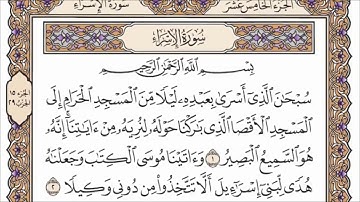 الجزء الخامس عشر
سورة الإسراء
سُورَةُ الإِسْرَاءِ
بِسْمِ اللَّهِ الرَّحْمَٰنِ الرَّحِيمِ
سُبْحَٰنَ ٱلَّذِىٓ أَسْرَىٰ بِعَبْدِهِۦ لَيْلًا مِّنَ ٱلْمَسْجِدِ ٱلْحَرَامِ إِلَى
ٱلْمَسْجِدِ ٱلْأَقْصَا ٱلَّذِى بَٰرَكْنَا حَوْلَهُۥ لِنُرِيَهُۥ مِنْ ءَايَٰتِنَآ إِنَّهُۥ
هُوَ ٱلسَّمِيعُ ٱلْبَصِيرُ ١ وَءَاتَيْنَا مُوسَى ٱلْكِتَٰبَ وَجَعَلْنَٰهُ
هُدًى لِّبَنِىٓ إِسْرَٰٓءِيلَ أَلَّا تَتَّخِذُوا۟ مِن دُونِى وَكِيلًا ٢
الجزء ١٥
الحزب ٢٩